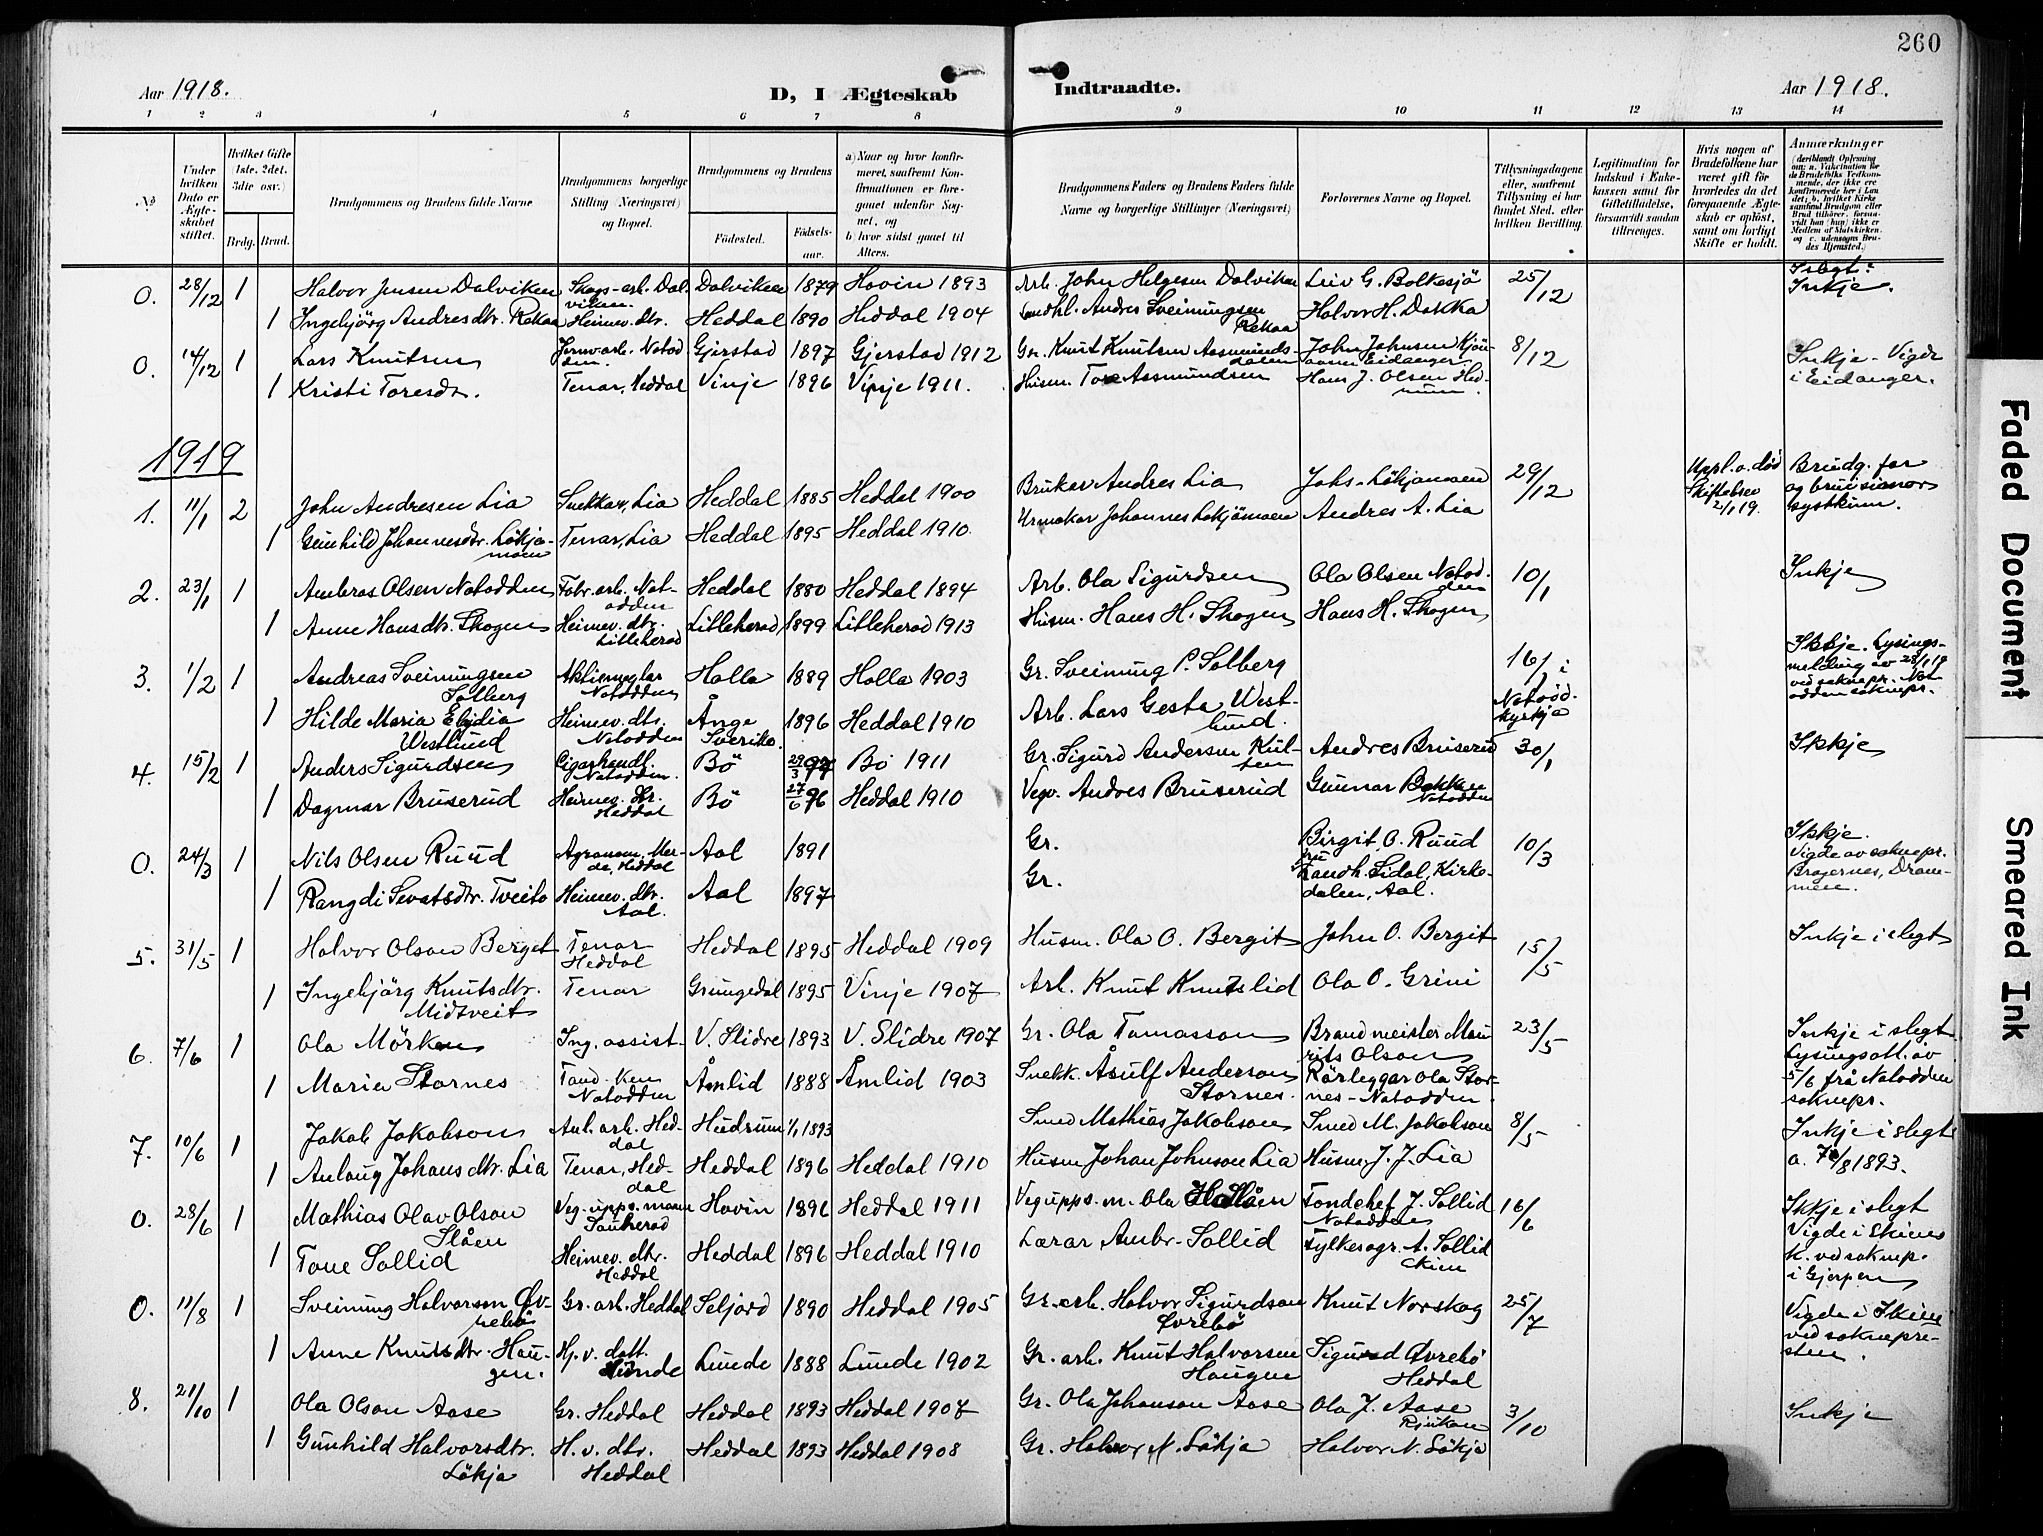 260
Aar 1918.
D, I Ægteskab Indtraadte.
Aar 1918.
1 2 3 4 5 6 7 8 9 10 11 12 13 14
No
Under hvilken Dato er Ægteskabet stiftet.
Hvilket Gifte (1ste, 2det, 3die osv.)
Brdg. Brud.
Brudgommens og Brudens fulde Navne
Brudgommens borgerlige Stilling (Næringsvei) og Bopæl.
Brudgommens og Brudens
Fødested. Fødselsaar.
a) Naar og hvor konfirmeret, saafremt Konfirmationen er foregaaet udenfor Sognet, og
b) hvor sidst gaaet til Alters.
Brudgommens Faders og Brudens Faders fulde Navne og borgerlige Stillinger (Næringsvei)
Forlovernes Navne og Bopæl.
Tillysningsdagene eller, saafremt Tillysning ei har fundet Sted, efter hvilken Bevilling.
Legitimation for Indskud i Enkekassen samt for Giftetilladelse, forsaavidt saadan tiltrænges.
Hvis nogen af Brudefolkene har været gift før hvorledes da det foregaaende Ægteskab er opløst, samt om lovligt Skifte er holdt.
Anmærkninger
0. 28/12 1 Halvor Jensen Dalviken Skogs-arb. Dalviken Dalviken 1879 Hovin 1893 Arb. John Helgesen Dalviken Leiv G. Bolkesjö 25/12 Islegt: Inkje.
1 Ingebjörg Andresdtr. Rekaa Heimev. dtr. Heddal 1890 Heddal 1904 Andres Sveinungsen Rekaa Halvor H. Dokka
0. 14/12 1 Lars Knutsen Jernv.arb. Notodden Gjerstad 1897 Gjerstad 1912 Gr. Knut Knutsen Aasmundsdalen John Johnsen Eidanger 8/12 Inkje - Vigde i Eidanger.
1 Kristi Toresdtr. Tenar, Heddal Vinje 1896 Vinje 1911. Husm. Tore Aasmundsen Hans J. Olsen
1919
1. 11/1 2 John Andresen Lia Snekkar, Lia Heddal 1885 Heddal 1900 Brukar Andres Lia Johs. Lökjamoen 29/12 Uppl. v. död Skiftebrev 2/1 19. Brudg. far og brurs mor systkin.
1 Gunhild Johannesdtr. Lökjamoen Tenar, Lia Heddal 1895 Heddal 1910. Urmakar Johannes Lökjamoen Andres A. Lia
2. 23/1 1 Ambros Olsen Notodden Fabr. arb. Notodden Heddal 1880 Heddal 1894 Arb. Ola Sigurdsen Ola Olsen Notodden 10/1 Inkje
1 Anne Hansdtr. Skogen Heimev. dtr. Lilleherad Lilleherad 1899 Lilleherad 1913 Husm. Hans H. Skogen Hans H. Skogen
3. 1/2 1 Andreas Sveinungsen Solberg Aktiemeglar Notodden Holla 1889 Holla 1903 Gr. Sveinung P. Solberg 16/1 i Notodd. kyrkje Ikkje. Lysingsmelding av 28/1 19 ved sokнepr. Notodden soknepr.
1 Hilde Maria Elidia Westlund Heimev. dtr. Notodden Ånge Sverike 1896 Heddal 1910 Arb. Lars Gesta Westlund.
4. 15/2 1 Anders Sigurdsen Cigarhandl. Notodden. Bö 29/3 97 Bö 1911 Gr. Sigurd Andersen Andres Bruserud 30/1 Ikkje
1 Dagmar Bruserud Heimev. dtr. Heddal Bö 27/6 96 Heddal 1910 Vegv. Andres Bruserud Gunnar Bakken Notodden
0. 24/3 1 Nils Olsen Ruud Agronom, Heddal Aal 1891 Gr. Birgit O. Ruud 10/3 Ikkje. Vigde av soknepr. Bragernes, Drammen.
1 Rangdi Sevatsdtr. Tveito Heimev. dtr. Aal. Aal 1897 Gr. Landh. Lidal, Kirkedalen, Aal.
5. 31/5 1 Halvor Olson Berget Tenar Heddal Heddal 1895 Heddal 1909 Husm. Ola O. Bergit John O. Bergit 15/5 Inkje i slegt
1 Ingebjörg Knutsdtr. Midtveit Tenar Grungedal 1895 Vinje 1907 Arb. Knut Knutslid Ola O. Grini
6. 7/6 1 Ola Mörken Ing. assist. V. Slidre 1893 V. Slidre 1907 Gr. Ola Tomasson Brandmeister Maurits Olson 23/5 Inkje i slegt Lysingsatt. av 5/6 frå Notodden soknepr.
1 Maria Stornes Notodden Åmlid 1888 Åmlid 1903 Snekk. Åsulf Anderson Stornes. Rörleggar Ola Stornes - Notodden
7. 10/6 1 Jakob Jakobson Anl. arb. Heddal Hedrum 1/1 1893 Smed Mathias Jakobson Smed M. Jakobson 8/5 Inkje i slegt
1 Aulaug Johansdtr. Lia Tenar, Heddal Heddal 1896 Heddal 1910 Husm. Johan Johnson Lia Husm. J. J. Lia
0. 28/6 1 Mathias Olav Olson Slåen Veg. upps.mann Sauherad Hovin 1896 Heddal 1911 Veg upps. m. Ola Slåen J. Sollid Notodden 16/6 Ikkje i slegt Vigde i Skiens K. ved soknepr. i Gjerpen
1 Tone Sollid Heimev. dtr. Heddal Heddal 1896 Heddal 1910 Lærar Ambr. Sollid Fylkesagr. A. Sollid Skien
0. 11/8 1 Sveinung Halvorsen Øvrebö Gr. arb. Heddal Seljord 1890 Heddal 1905 Gr. arb. Halvor Sigurdson Øvrebö Knut Norskog 25/7 Vigde i Skien ved sokneprestеn.
1 Anne Knutsdtr. Haugen. Hj. v. dott. Lunde Lunde 1888 Lunde 1902 Gr. arb. Knut Halvorsen Haugen Sigurd Øvrebö Heddal
8. 21/10 1 Ola Olson Aase Gr. Heddal Heddal 1893 Heddal 1907 Gr. Ola Johanson Aase Ola J. Aase Rjukan 3/10 Inkje
1 Gunhild Halvorsdtr. Lökja H. v. dtr. Heddal Heddal 1893 Heddal 1908 Gr. Halvor N. Lökja Halvor N. Lökja
Faded Document
Smeared Ink